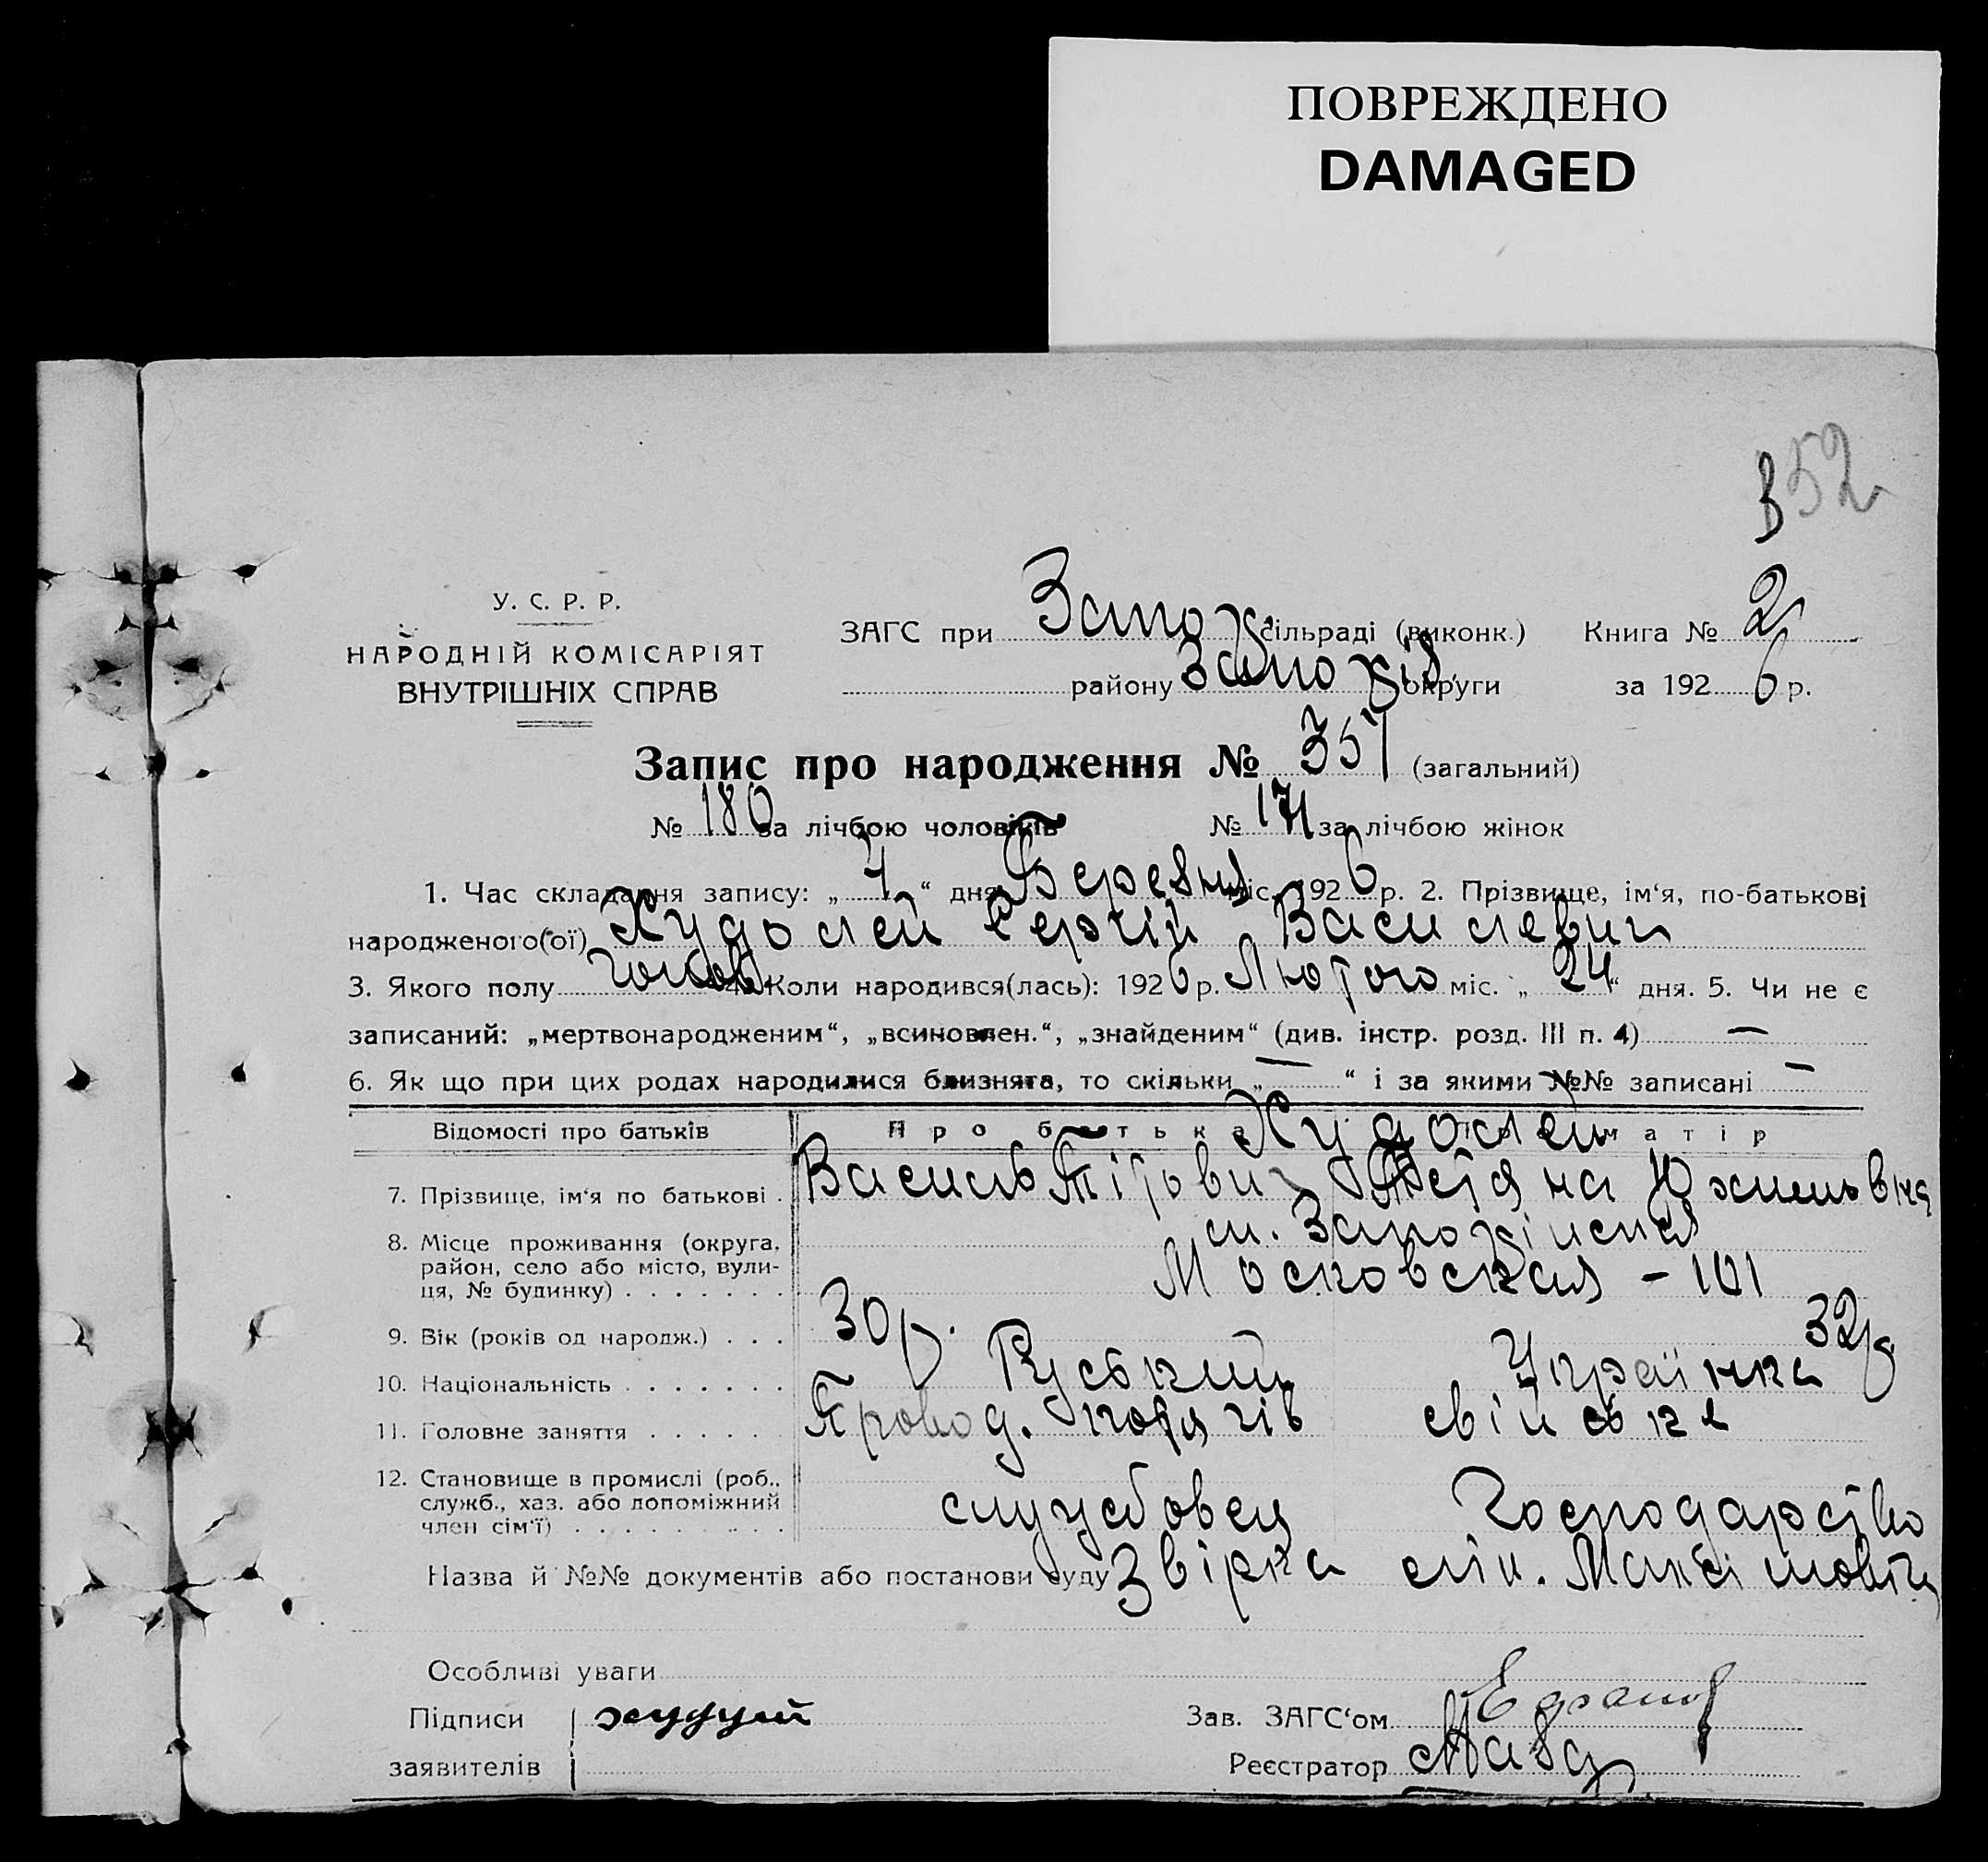 ПОВРЕЖДЕНО
DAMAGED
352
У. С. Р. Р.
НАРОДНІЙ КОМІСАРІЯТ
ВНУТРІШНІХ СПРАВ
ЗАГС при Запоріж сільраді (виконк.) Книга № 2
району Запоріж округи за 1926 р.
Запис про народження № 351 (загальний)
№ 180 за лічбою чоловіків № 171 за лічбою жінок
1. Час складання запису: „ 4 “ дня Березня міс. 1926 р. 2. Прізвище, ім‘я, по-батькові
народженого(ої) Худолей Сергій Василевич
3. Якого полу чолов. 4. Коли народився(лась): 1926 р. Лютого міс. „ 24 “ дня. 5. Чи не є
записаний: „мертвонародженим“, „всиновлен.“, „знайденим“ (див. інстр. розд. III п. 4) —
6. Як що при цих родах народилися близнята, то скільки „ — “ і за якими №№ записані —
Відомості про батьків Про батька Про матір
Худолей
7. Прізвище, ім‘я по батькові . Василь Тітович
8. Місце проживання (округа, район, село або місто, вулиця, № будинку) . . . . . . .
Московская - 101
9. Вік (років од народж.) . . . 30 р. 32 р
10. Національність . . . . . . . Руський Українка
11. Головне заняття . . . . . . Провод. потягів свійське
12. Становище в промислі (роб., служб., хаз. або допоміжний член сім‘ї) . . . . . . . . . . службовец Господарство
Назва й №№ документів або постанови суду Звірка
Особливі уваги
Підписи
заявителів
Зав. ЗАГС‘ом
Реєстратор